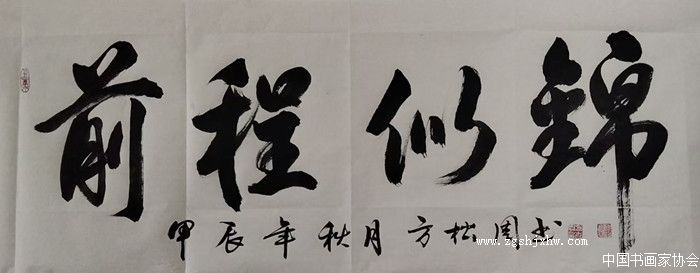 前程似錦
甲辰年秋月方松周书
www.zgshjxhw.com
中国书画家协会